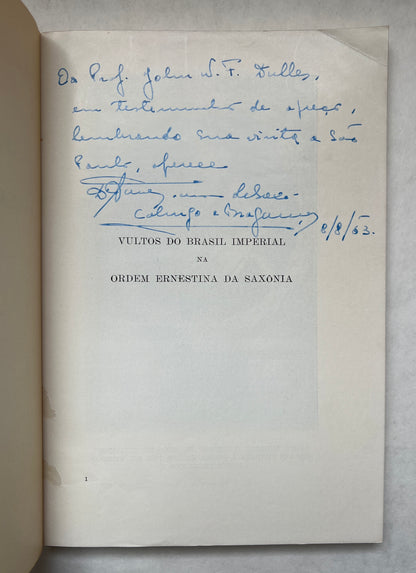 Ao Prof. John W. F. Dulles,
em testemunho de apreço,
lembrando sua visita a São
Paulo, oferece
Coburgo e Bragança
8/8/63.
VULTOS DO BRASIL IMPERIAL
NA
ORDEM ERNESTINA DA SAXÔNIA
1